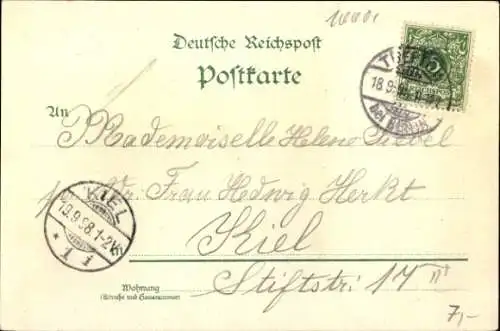 Deutsche Reichspost
Postkarte
An
Mademoiselle Helene Siebel
pr. Adr. Frau Hedwig Herkt
Kiel
Stiftstr. 17 II
Wohnung
(Straße und Hausnummer)
KIEL
19.9.98.1-2N.
* 1 i
18.9.98
bei BERLIN
5
7,-